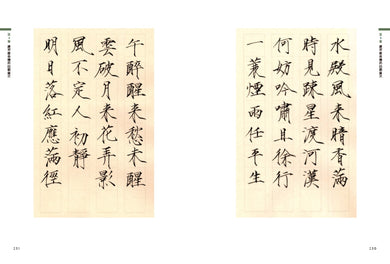 水殿風来暗香滿
時見疎星渡河漢
何妨吟嘯且徐行
一蓑煙雨任平生
130
午醉醒来愁未醒
雲破月来花弄影
風不定人初靜
明日落紅應滿徑
131